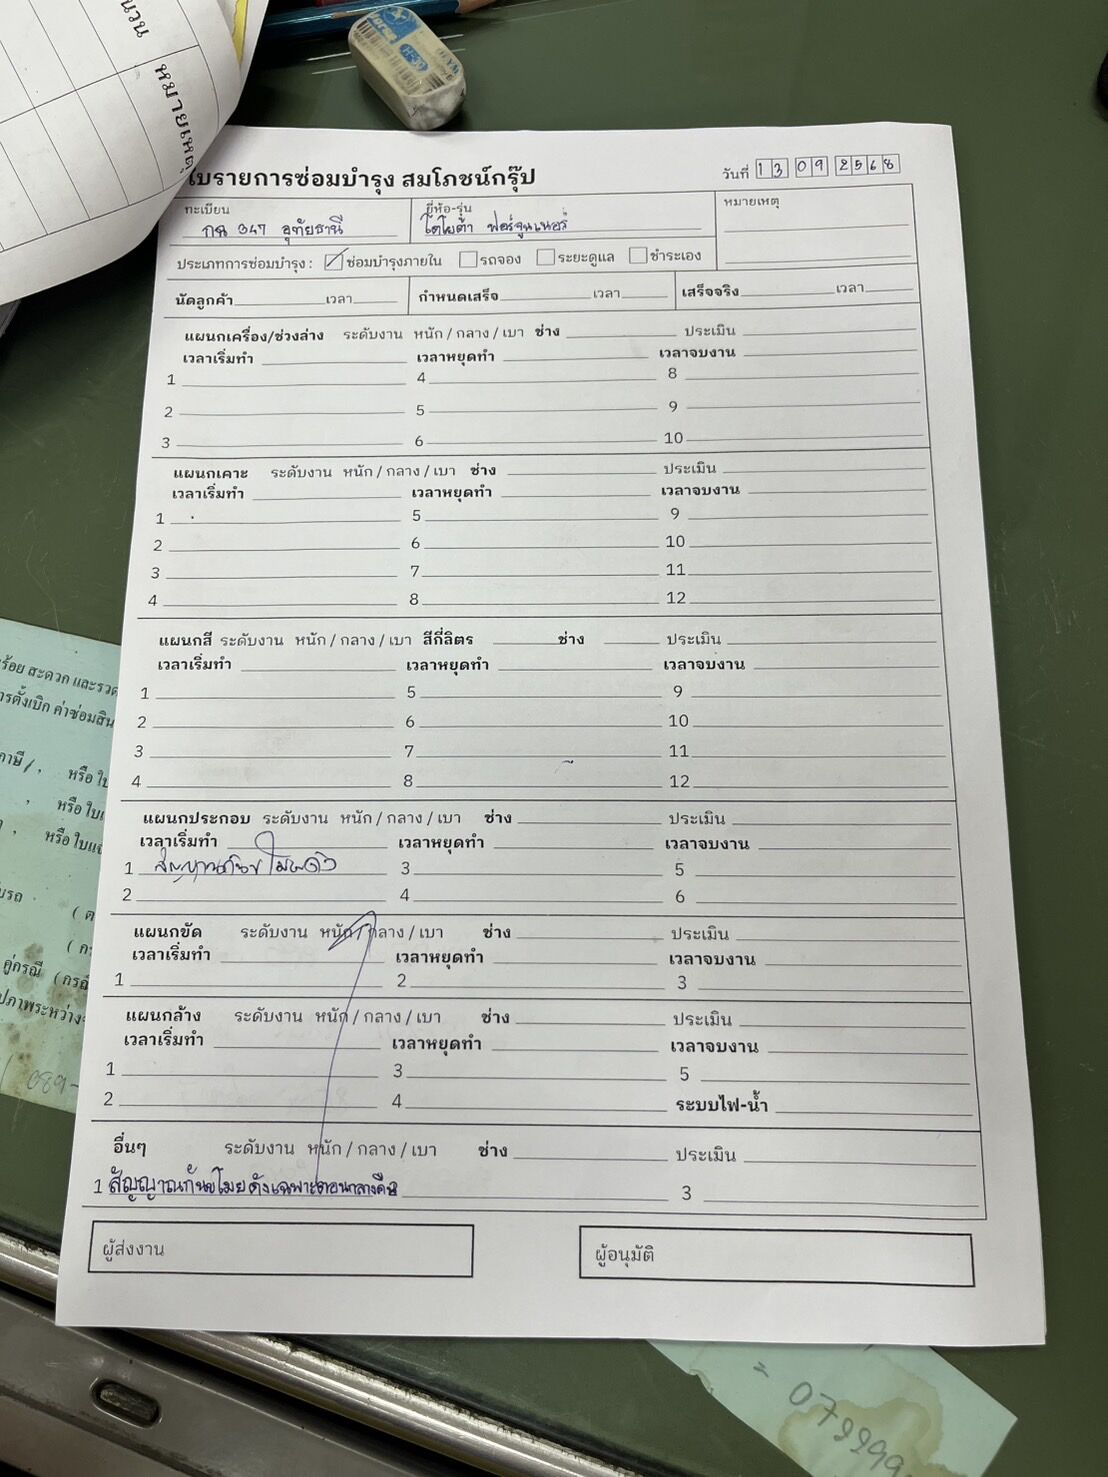 หมายเหตุ
ใบรายการซ่อมบำรุง สมโภชน์กรุ๊ป
วันที่ 13 09 2568
ทะเบียน ยี่ห้อ-รุ่น หมายเหตุ
347 อุทัยธานี โตโยต้า ฟอร์จูนเนอร์
ประเภทการซ่อมบำรุง : ซ่อมบำรุงภายใน รถจอง ระยะดูแล ชำระเอง
นัดลูกค้า เวลา กำหนดเสร็จ เวลา เสร็จจริง เวลา
แผนกเครื่อง/ช่วงล่าง ระดับงาน หนัก / กลาง / เบา ช่าง ประเมิน
เวลาเริ่มทำ เวลาหยุดทำ เวลาจบงาน
1 4 8
2 5 9
3 6 10
แผนกเคาะ ระดับงาน หนัก / กลาง / เบา ช่าง ประเมิน
เวลาเริ่มทำ เวลาหยุดทำ เวลาจบงาน
1 5 9
2 6 10
3 7 11
4 8 12
แผนกสี ระดับงาน หนัก / กลาง / เบา สีกี่ลิตร ช่าง ประเมิน
เวลาเริ่มทำ เวลาหยุดทำ เวลาจบงาน
1 5 9
2 6 10
3 7 11
4 8 12
แผนกประกอบ ระดับงาน หนัก / กลาง / เบา ช่าง ประเมิน
เวลาเริ่มทำ เวลาหยุดทำ เวลาจบงาน
1 สัญญาณกันขโมยดัง 3 5
2 4 6
แผนกขัด ระดับงาน หนัก / กลาง / เบา ช่าง ประเมิน
เวลาเริ่มทำ เวลาหยุดทำ เวลาจบงาน
1 2 3
แผนกล้าง ระดับงาน หนัก / กลาง / เบา ช่าง ประเมิน
เวลาเริ่มทำ เวลาหยุดทำ เวลาจบงาน
1 3 5
2 4 ระบบไฟ-น้ำ
อื่นๆ ระดับงาน หนัก / กลาง / เบา ช่าง ประเมิน
1 สัญญาณกันขโมยดังเฉพาะตอนกลางคืน 3
ผู้ส่งงาน ผู้อนุมัติ
สะดวก และรวด
ารตั้งเบิก ค่าซ่อมสิน
หรือ ใบ
หรือ ใบ
หรือ ใบแจ้
คู่กรณี (กรณี
089-